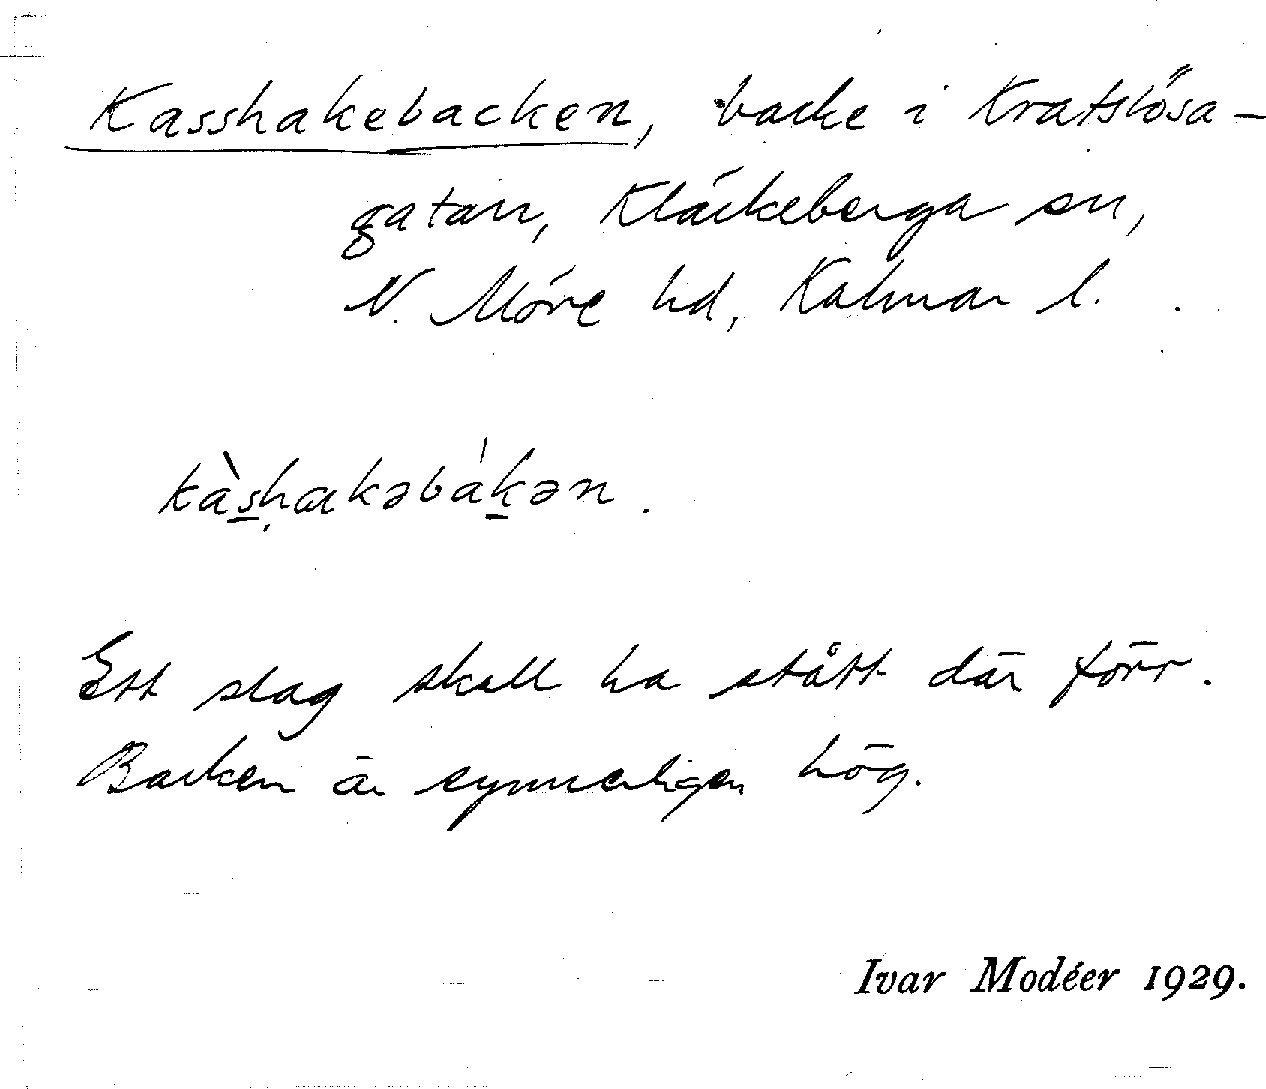 Kasshakebacken, backe i Kratslösa-
gatan, Kläckeberga sn,
N. Möre hd, Kalmar l.
kàs̲h̩akəbák̲ən.
Ett slag skall ha stått där förr.
Backen är synnerligen hög.
Ivar Modéer 1929.